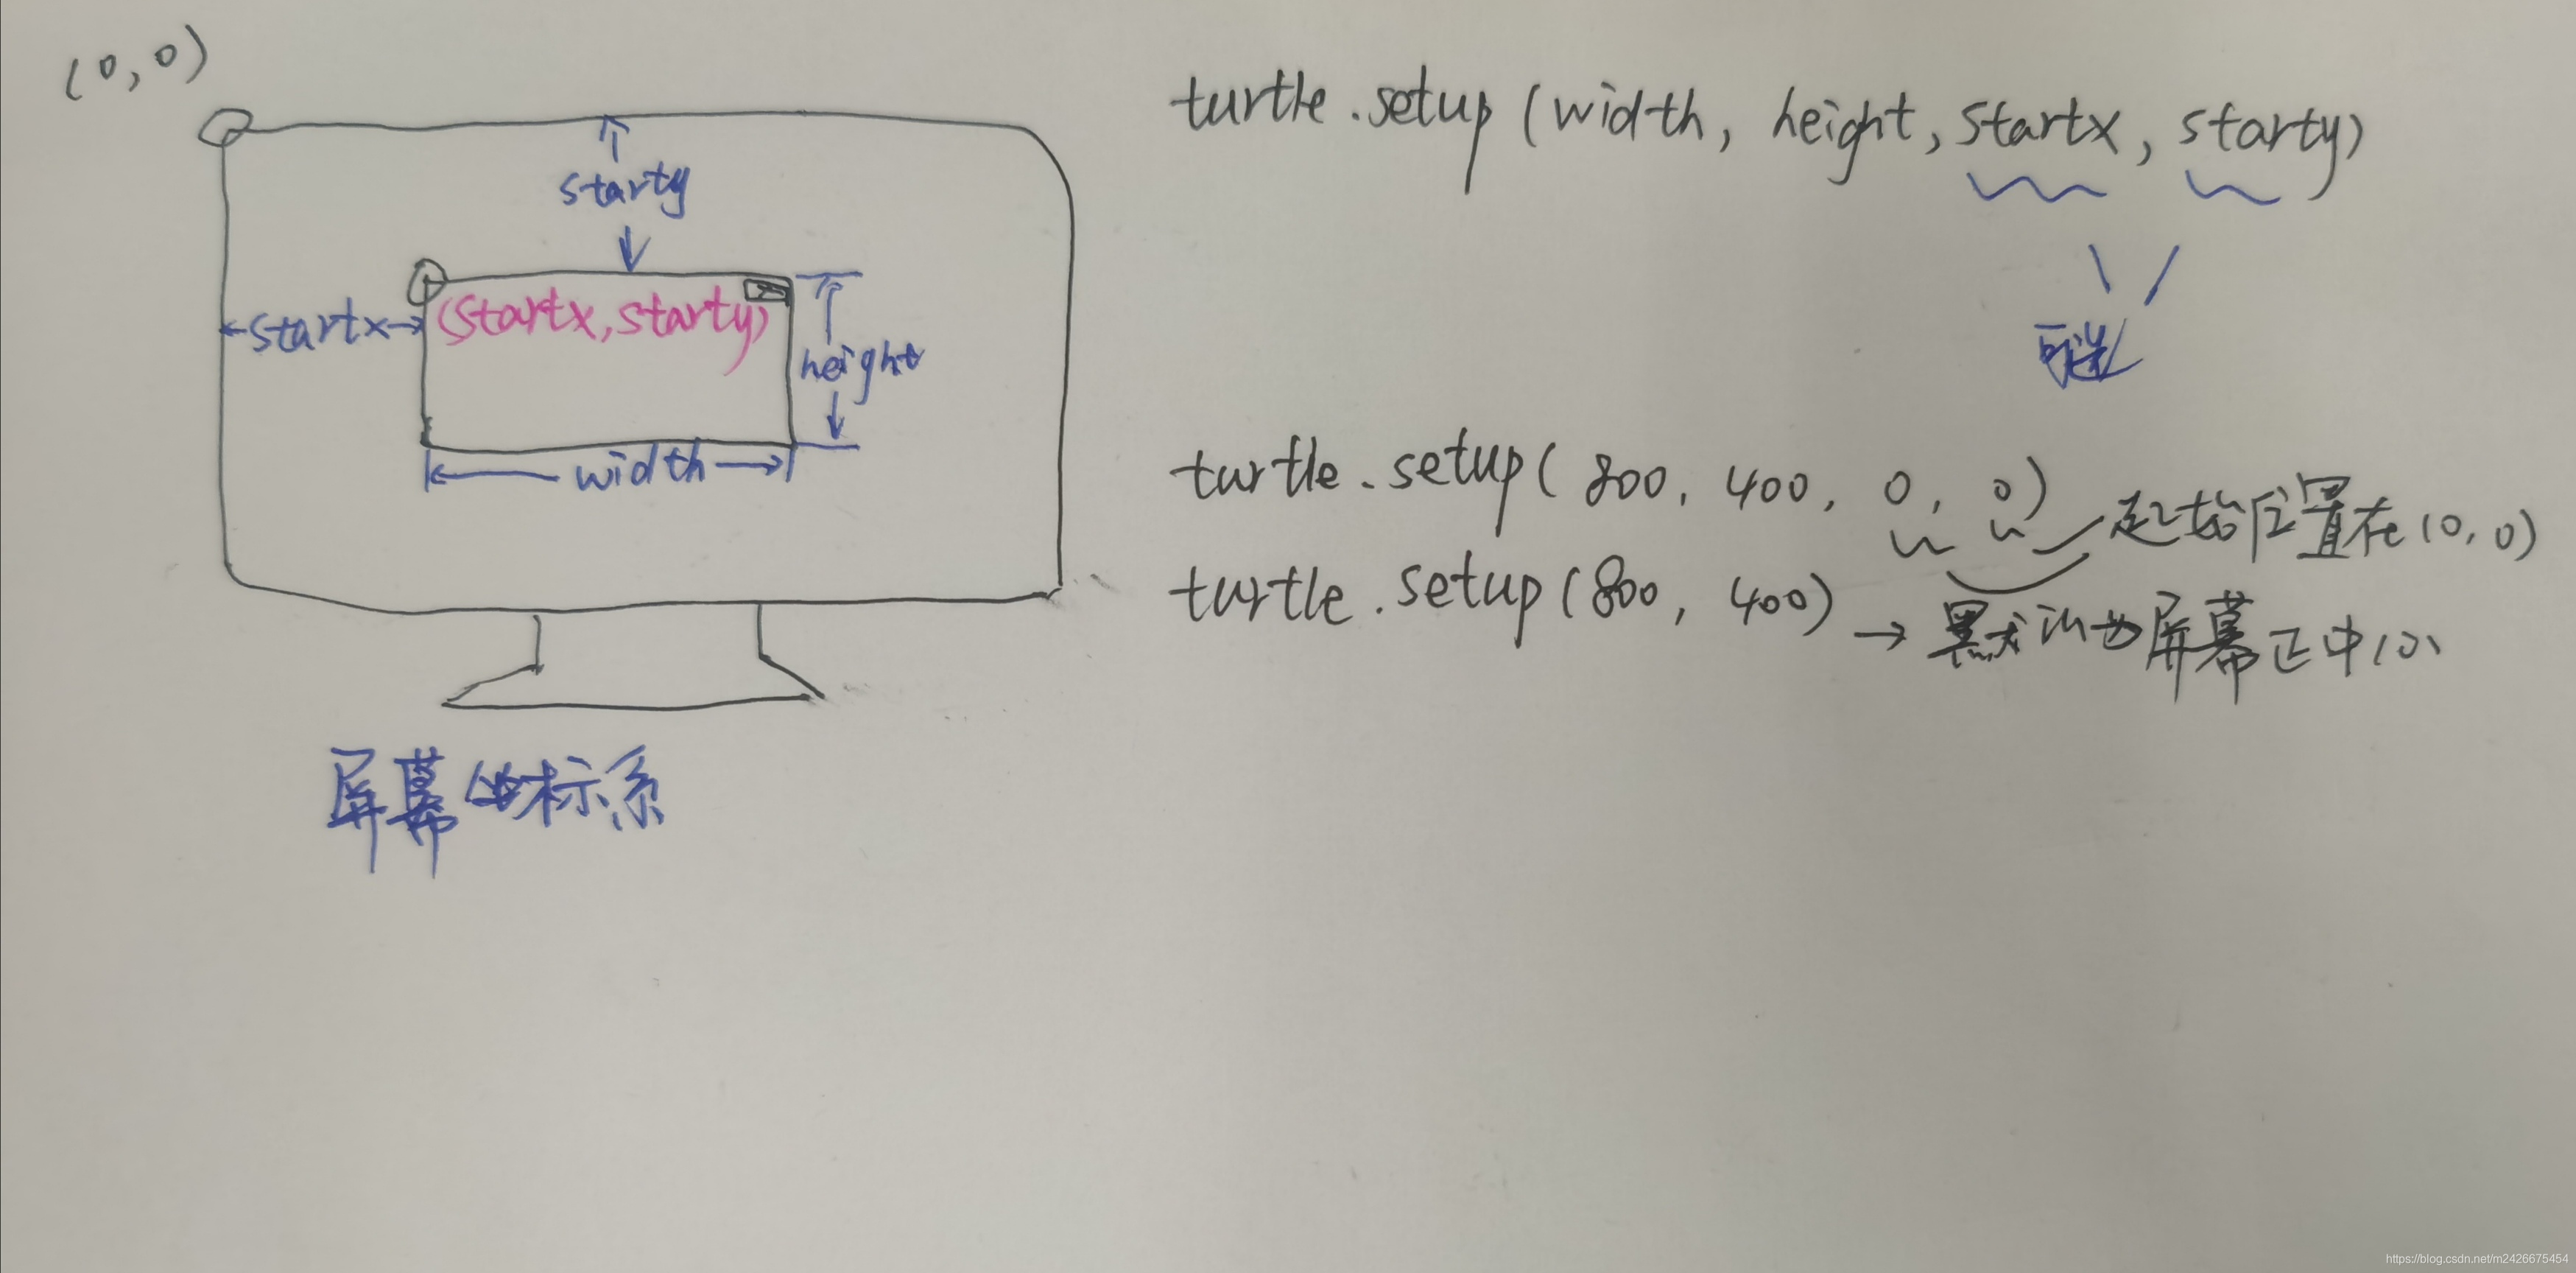 (0,0)
starty
startx
(startx,starty)
height
width
屏幕坐标系
turtle.setup(width, height, startx, starty)
可选
turtle.setup(800, 400, 0, 0)
起始位置在(0,0)
turtle.setup(800, 400)
→默认为屏幕正中心
https://blog.csdn.net/m2426675454